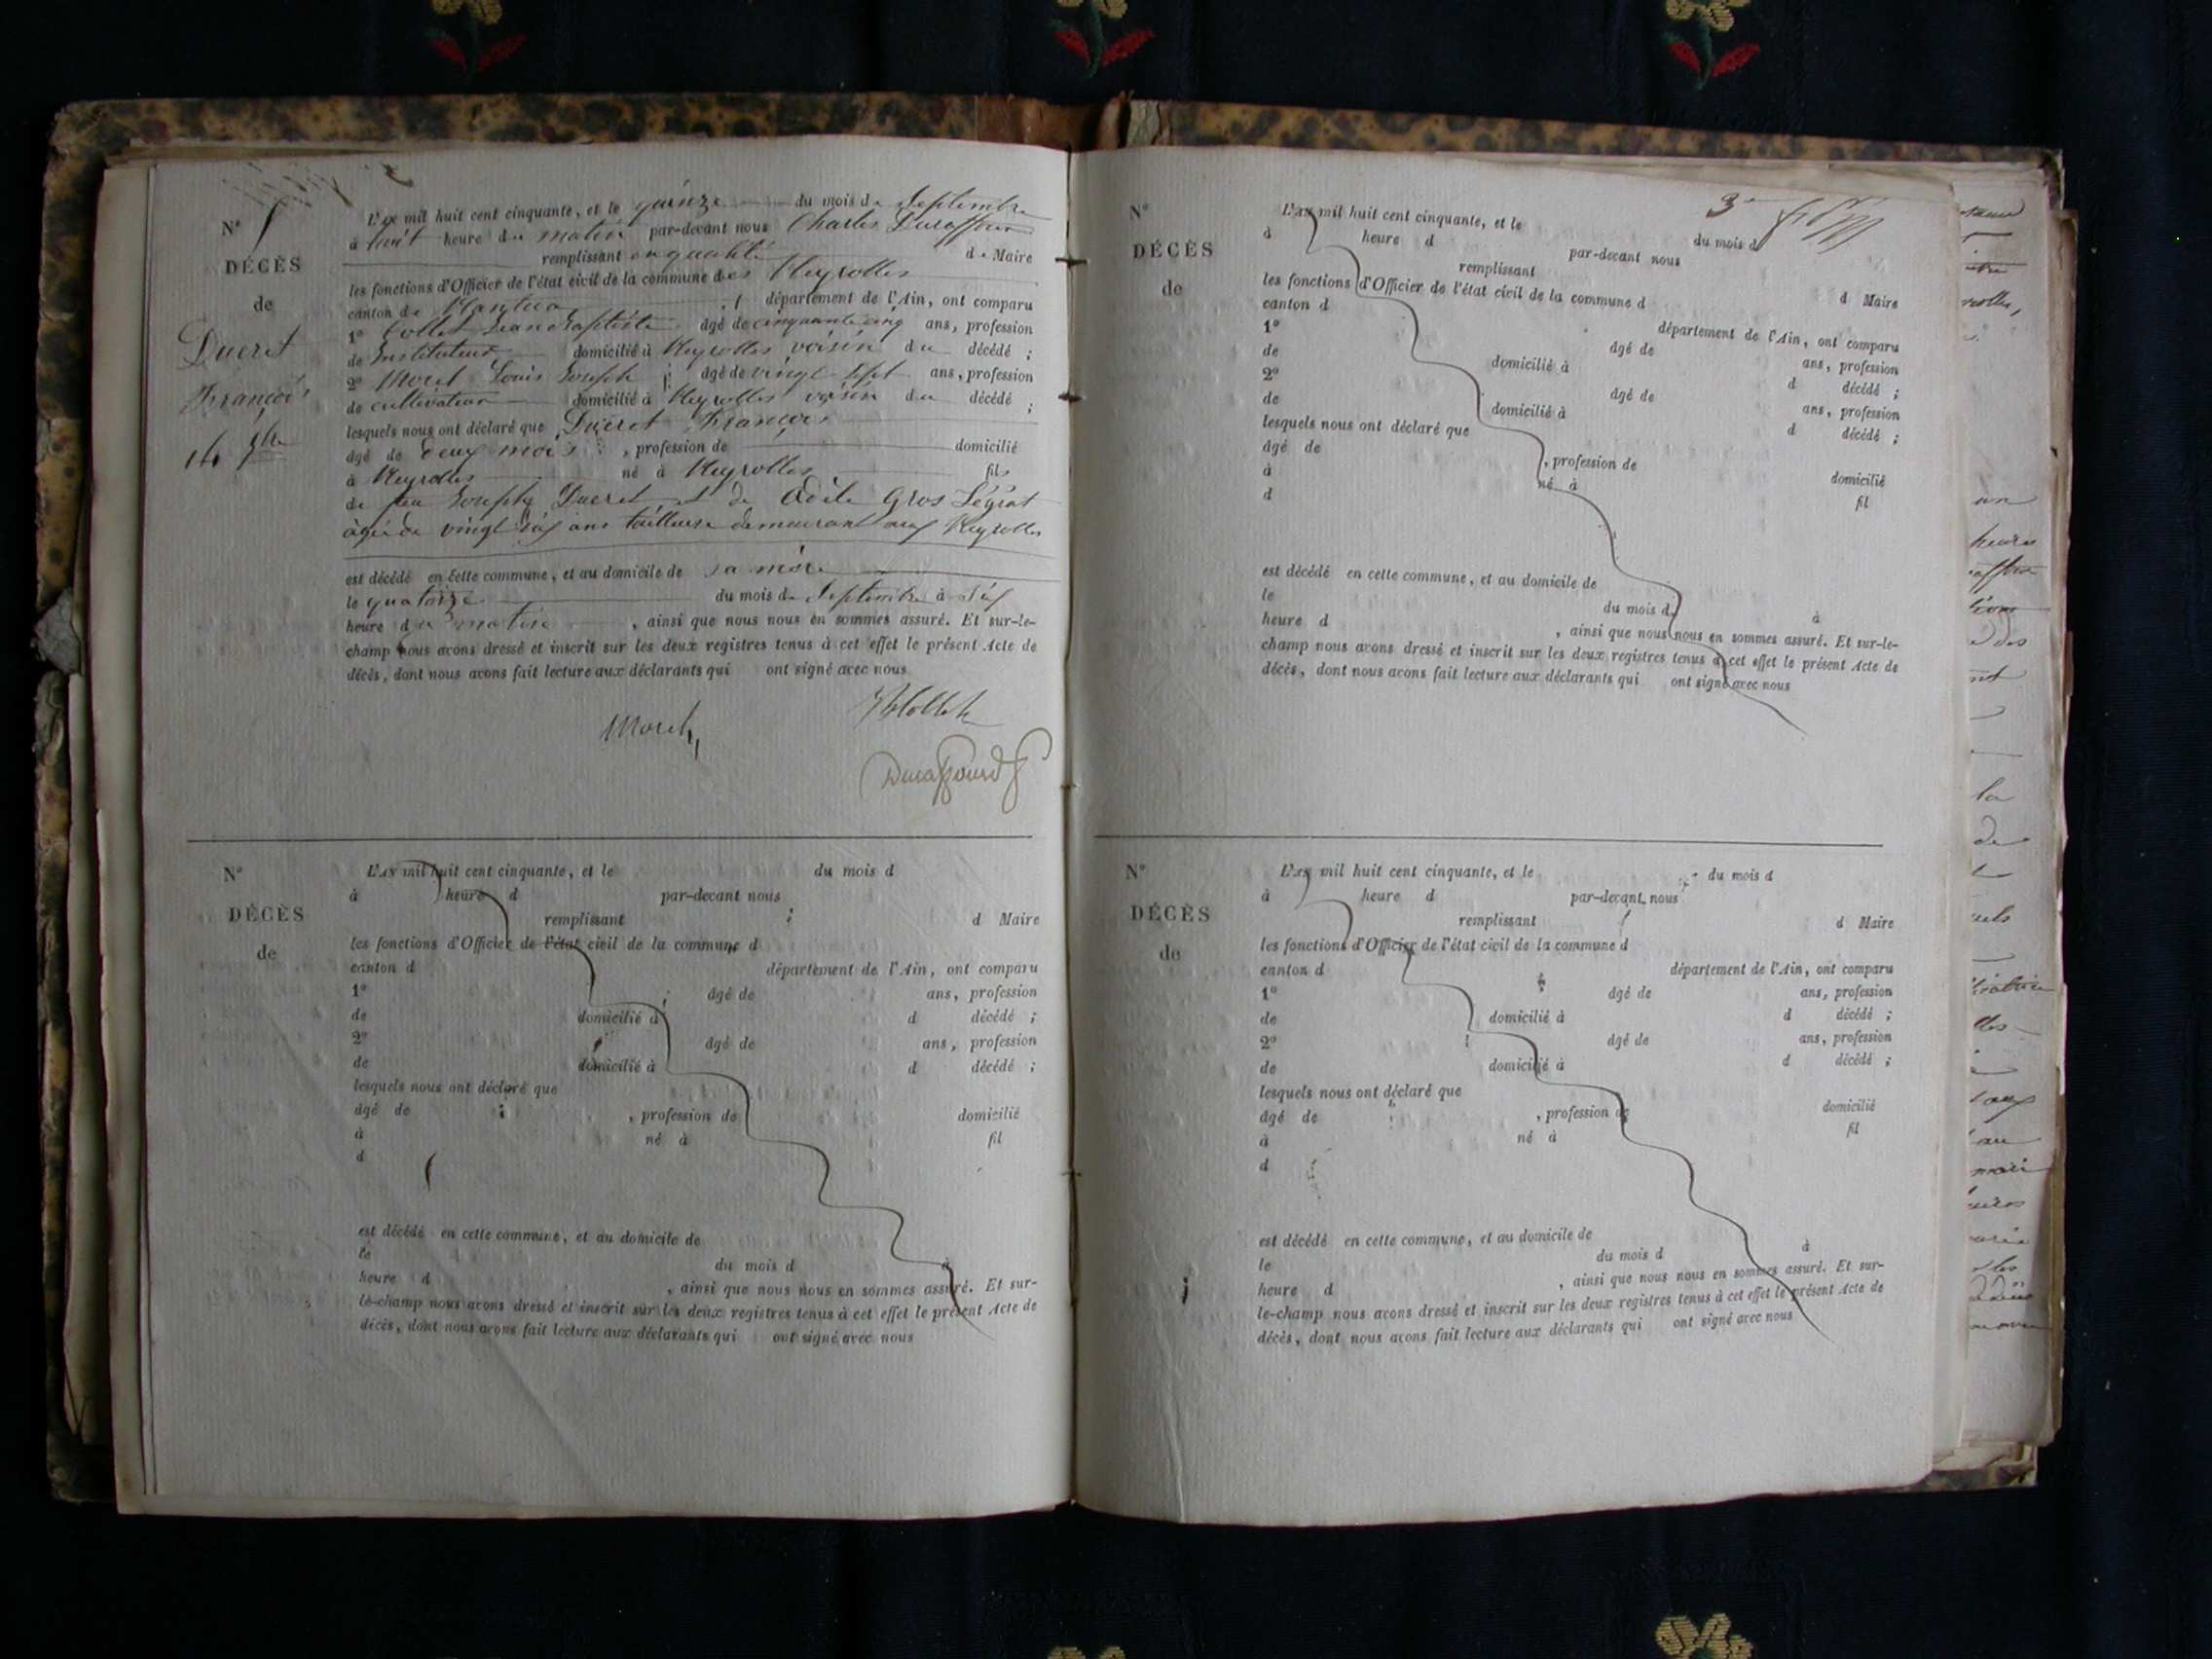 N°
DÉCÈS
de
Ducret
François
14 7bre
L'AN mil huit cent cinquante, et le quinze du mois de Septembre
à huit heure du matin par-devant nous Charles Duraffour
remplissant en qualité de Maire
les fonctions d'Officier de l'état civil de la commune des Neyrolles
canton de Nantua département de l'Ain, ont comparu
1° Collet Jean Baptiste âgé de cinquante cinq ans, profession
de Instituteur domicilié à Neyrolles voisin du décédé ;
2° Morel Louis Joseph âgé de vingt sept ans, profession
de cultivateur domicilié à Neyrolles voisin du décédé ;
lesquels nous ont déclaré que Ducret François
âgé de deux mois , profession de domicilié
à Neyrolles né à Neyrolles fils
de feu Joseph Ducret et de Adèle Gros
âgée de vingt six ans tailleuse demeurant aux Neyrolles
est décédé en cette commune, et au domicile de sa mère
le quatorze du mois de Septembre à six
heure du matin , ainsi que nous nous en sommes assuré. Et sur-le-
champ nous avons dressé et inscrit sur les deux registres tenus à cet effet le présent Acte de
décès, dont nous avons fait lecture aux déclarants qui ont signé avec nous
Morel
Collet
Duraffourd
N°
DÉCÈS
de
L'AN mil huit cent cinquante, et le du mois d
à heure d par-devant nous
remplissant d Maire
les fonctions d'Officier de l'état civil de la commune d
canton d département de l'Ain, ont comparu
1° âgé de ans, profession
de domicilié à d décédé ;
2° âgé de ans, profession
de domicilié à d décédé ;
lesquels nous ont déclaré que
âgé de , profession de domicilié
à né à fil
d
est décédé en cette commune, et au domicile de
le du mois d à
heure d , ainsi que nous nous en sommes assuré. Et sur-
le-champ nous avons dressé et inscrit sur les deux registres tenus à cet effet le présent Acte de
décès, dont nous avons fait lecture aux déclarants qui ont signé avec nous
3e
N°
DÉCÈS
de
L'AN mil huit cent cinquante, et le du mois d
à heure d par-devant nous
remplissant d Maire
les fonctions d'Officier de l'état civil de la commune d
canton d département de l'Ain, ont comparu
1° âgé de ans, profession
de domicilié à d décédé ;
2° âgé de ans, profession
de domicilié à d décédé ;
lesquels nous ont déclaré que
âgé de , profession de domicilié
à né à fil
d
est décédé en cette commune, et au domicile de
le du mois d à
heure d , ainsi que nous nous en sommes assuré. Et sur-le-
champ nous avons dressé et inscrit sur les deux registres tenus à cet effet le présent Acte de
décès, dont nous avons fait lecture aux déclarants qui ont signé avec nous
N°
DÉCÈS
de
L'AN mil huit cent cinquante, et le du mois d
à heure d par-devant nous
remplissant d Maire
les fonctions d'Officier de l'état civil de la commune d
canton d département de l'Ain, ont comparu
1° âgé de ans, profession
de domicilié à d décédé ;
2° âgé de ans, profession
de domicilié à d décédé ;
lesquels nous ont déclaré que
âgé de , profession de domicilié
à né à fil
d
est décédé en cette commune, et au domicile de
le du mois d à
heure d , ainsi que nous nous en sommes assuré. Et sur-
le-champ nous avons dressé et inscrit sur les deux registres tenus à cet effet le présent Acte de
décès, dont nous avons fait lecture aux déclarants qui ont signé avec nous
un
heures
des
la
de